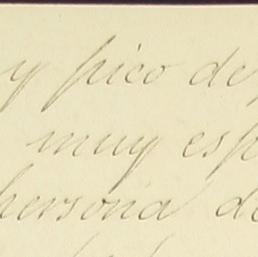 y pico de
muy esp
persona de